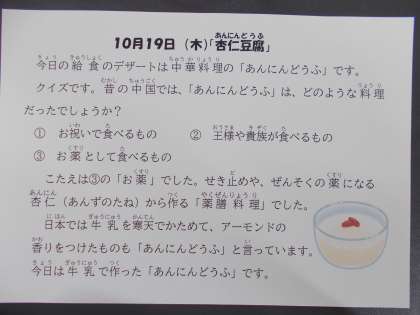 10月19日（木）「杏仁豆腐」
今日の給食のデザートは中華料理の「あんにんどうふ」です。
クイズです。昔の中国では、「あんにんどうふ」は、どのような料理
だったでしょうか？
① お祝いで食べるもの　② 王様や貴族が食べるもの
③ お薬として食べるもの
こたえは③の「お薬」でした。せき止めや、ぜんそくの薬になる
杏仁（あんずのたね）から作る「薬膳料理」でした。
日本では牛乳を寒天でかためて、アーモンドの
香りをつけたものも「あんにんどうふ」と言っています。
今日は牛乳で作った「あんにんどうふ」です。